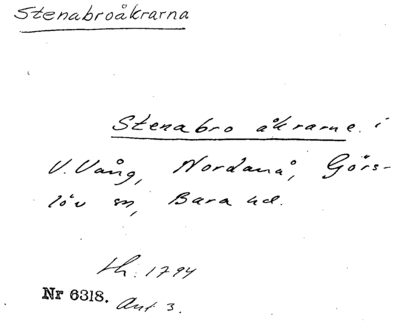 Stenabroåkrarna
Stenabro åkrarne i
V. Vång, Nordanå, Görs-
löv sn, Bara hd.
th. 1794
Nr 6318. Ant 3.